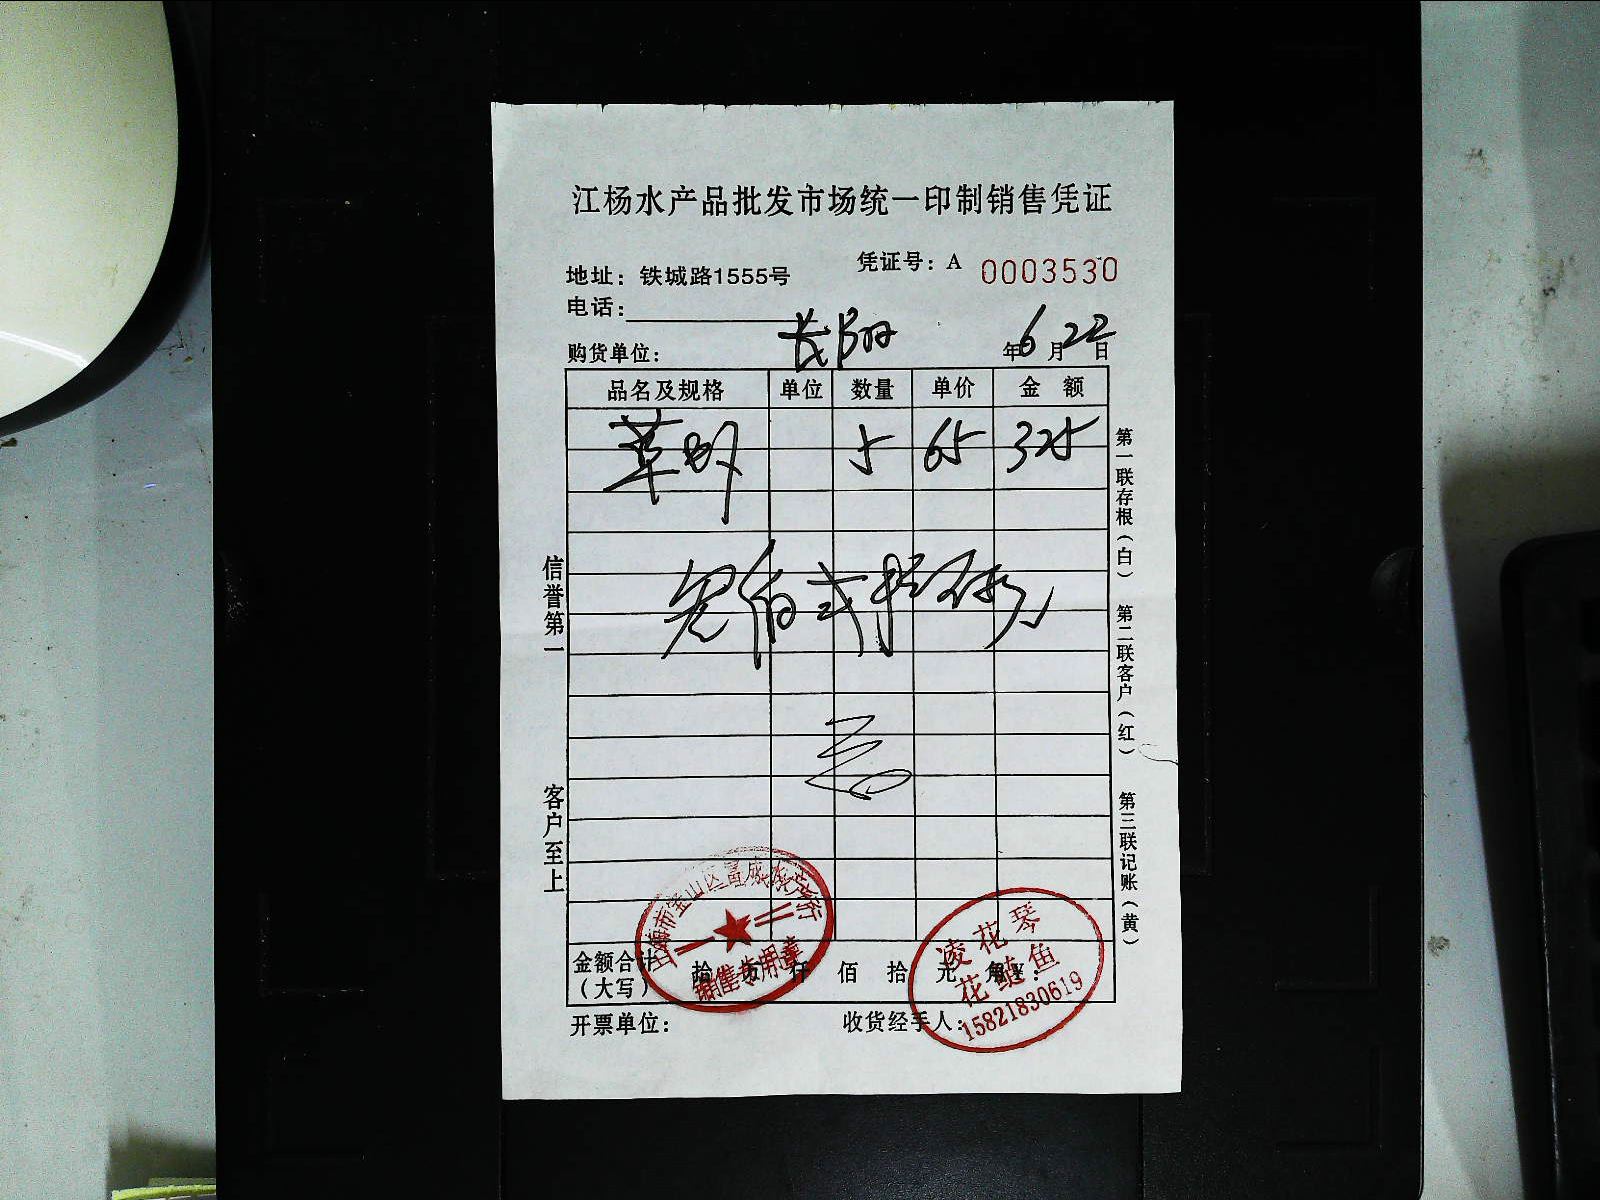 江杨水产品批发市场统一印制销售凭证
凭证号：A 0003530
地址：铁城路1555号
电话：
购货单位： 长阳 年6月22日
品名及规格 单位 数量 单价 金 额
草 5 65 325
叁佰贰拾伍元
信誉第一
客户至上
第一联存根（白）
第二联客户（红）
第三联记账（黄）
金额合计（大写） 拾 万 仟 佰 拾 元 角 ￥：
开票单位： 收货经手人：
上海市宝山区富成水产行
销售专用章
凌花琴
花鲢鱼
15821830619